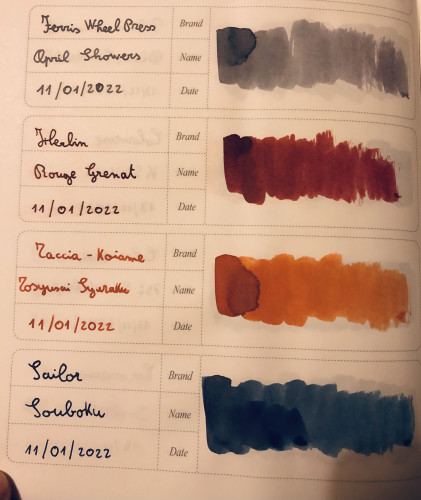 Ferris Wheel Press Brand
April Showers Name
11/01/2022 Date
Herbin Brand
Rouge Grenat Name
11/01/2022 Date
Taccia - Koiame Brand
Tosyusai Syaraku Name
11/01/2022 Date
Sailor Brand
Souboku Name
11/01/2022 Date